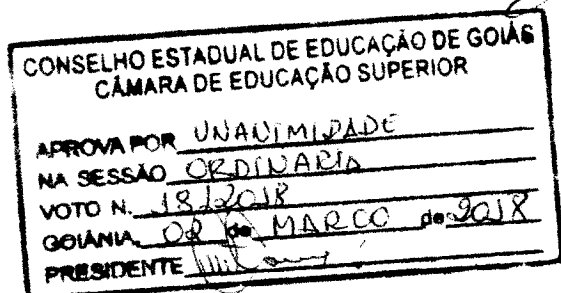 CONSELHO ESTADUAL DE EDUCAÇÃO DE GOIÁS
CÂMARA DE EDUCAÇÃO SUPERIOR
APROVA POR UNANIMIDADE
NA SESSÃO ORDINARIA
VOTO N. 18/2018
GOIÂNIA, de MARCO de 2018
PRESIDENTE